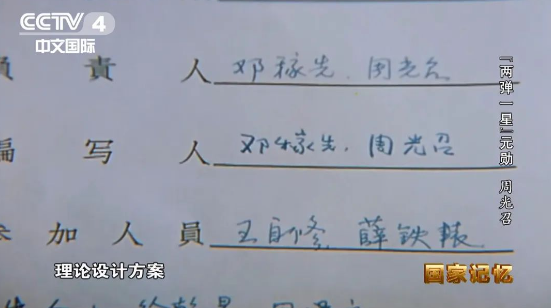 CCTV 4
中文国际
負責人 邓稼先、周光召
编写人 邓稼先、周光召
参加人員 王自修 薛铁辕
「两弹一星」元勋 周光召
理论设计方案
国家记忆